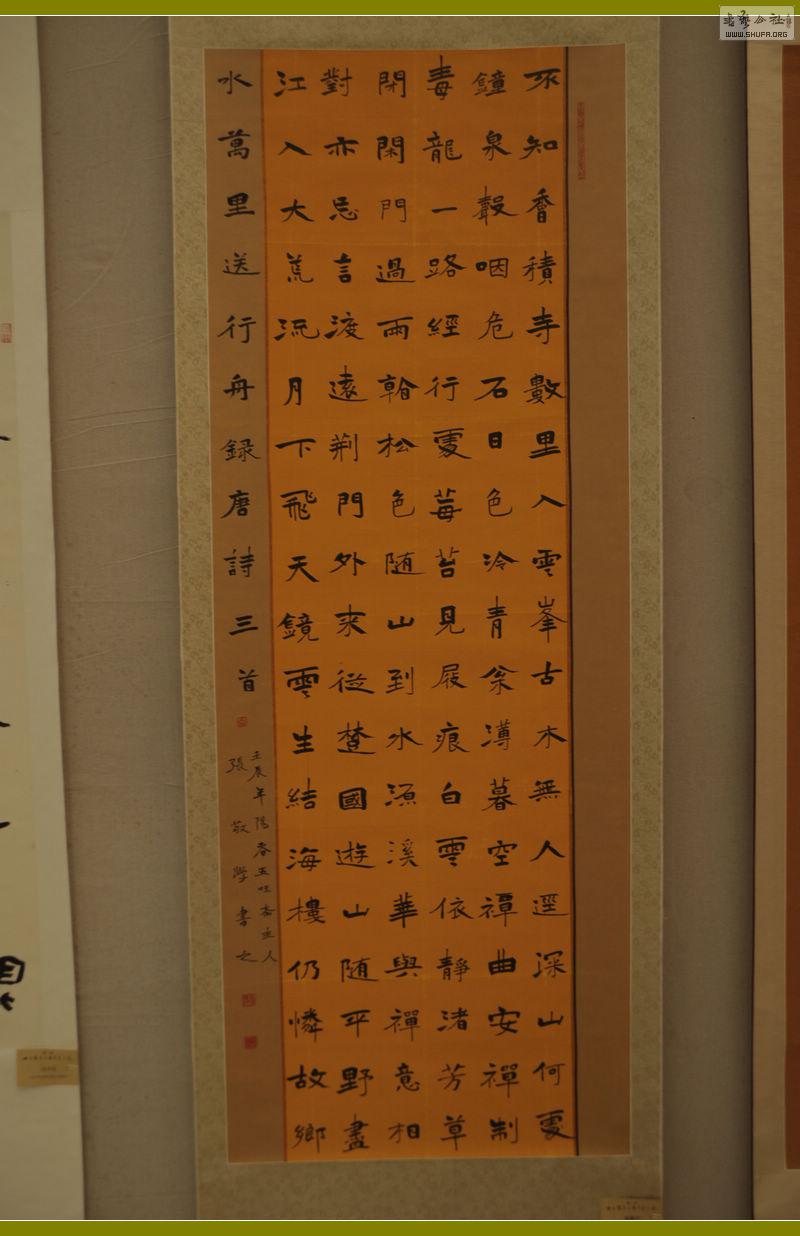 不知香積寺數里入雲峯古木無人逕深山何處
鐘泉聲咽危石日色冷青枀薄暮空禪曲安禪制
毒龍一路經行處莓苔見屐痕白雲依靜渚芳草
閉閑門過雨翰松色随山到水源溪華與禪意相
對亦忘言渡遠荆門外来從楚國遊山随平野盡
江入大荒流月下飛天鏡雲生結海樓仍憐故鄉
水萬里送行舟録唐詩三首
壬辰年陽春五主人
張敬學書之
WWW.SHUFA.ORG